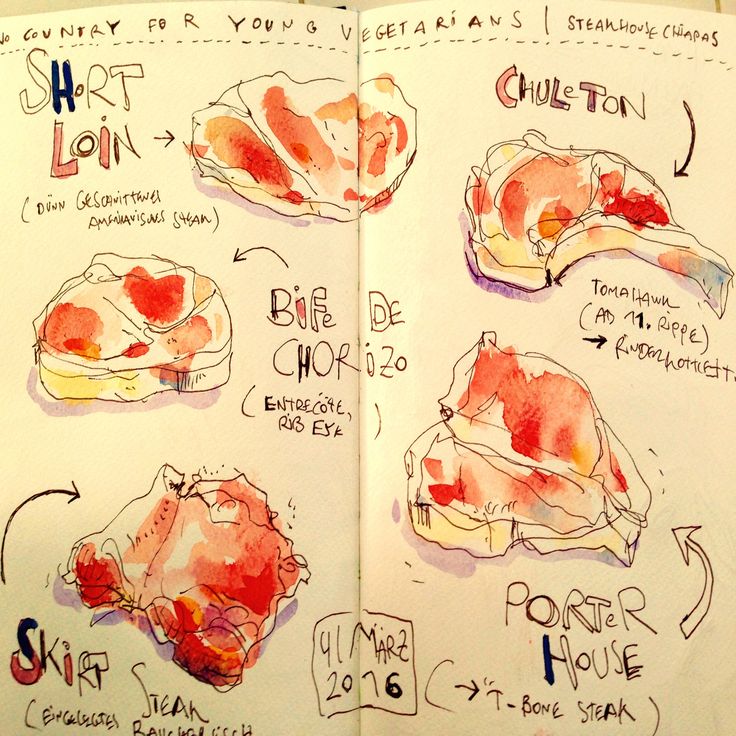 NO COUNTRY FOR YOUNG VEGETARIANS | STEAKHOUSE CHIAPAS
SHORT
LOIN →
(DÜNN GESCHNITTENES
AMERIKANISCHES STEAK)
CHULETON
TOMAHAWK
(AB 11. RIPPE)
→ RINDERKOTELETT.
BIFE DE
CHORIZO
(ENTRECÔTE,
RIB EYE)
SKIRT
STEAK
(EINGELEGTES
BAUCHFLEISCH
41 MÄRZ
2016
PORTER
HOUSE
(→ "T-BONE STEAK)